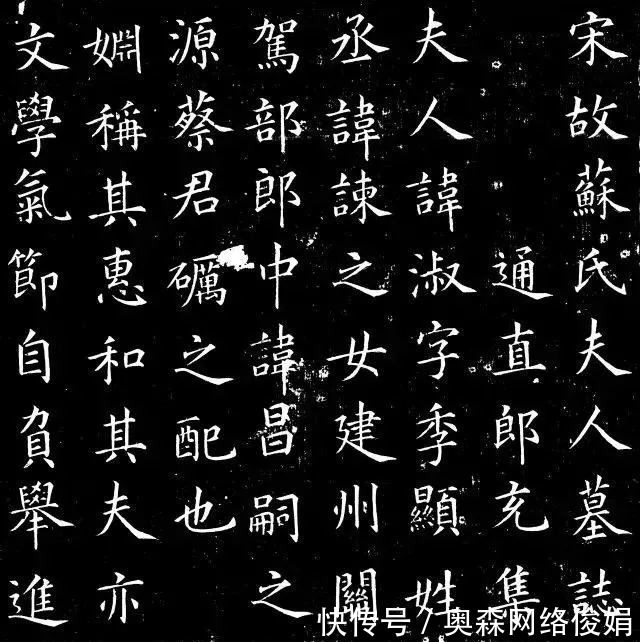 宋故蘇氏夫人墓誌
通直郎充集
夫人諱淑字季顯姓
丞諱諫之女建州關
駕部郎中諱昌嗣之
源蔡君礪之配也
婣稱其惠和其夫亦
文學氣節自負舉進
快传号／奥森网络俊娟